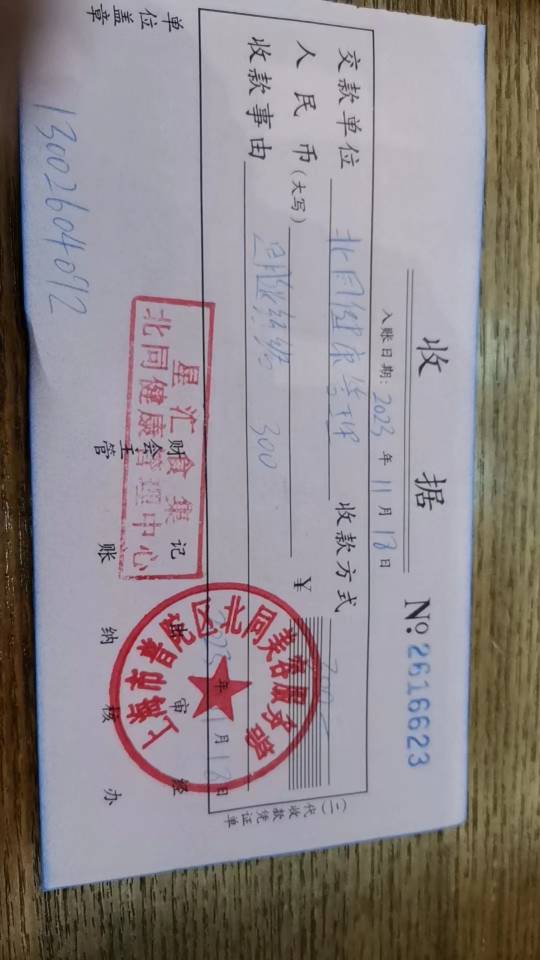 收 据
No. 2616623
入账日期: 2023 年 11 月 18 日
交款单位 北同健康管理 收款方式
人民币 (大写) ¥
收款事由 300
2023 年 11 月 18 日
(二)代收款凭证单
星汇 食集
北同健康管理中心
上海市普陀区北同美容服务部
单位盖章 财会主管 记账 出纳 审核 经办
13002604092